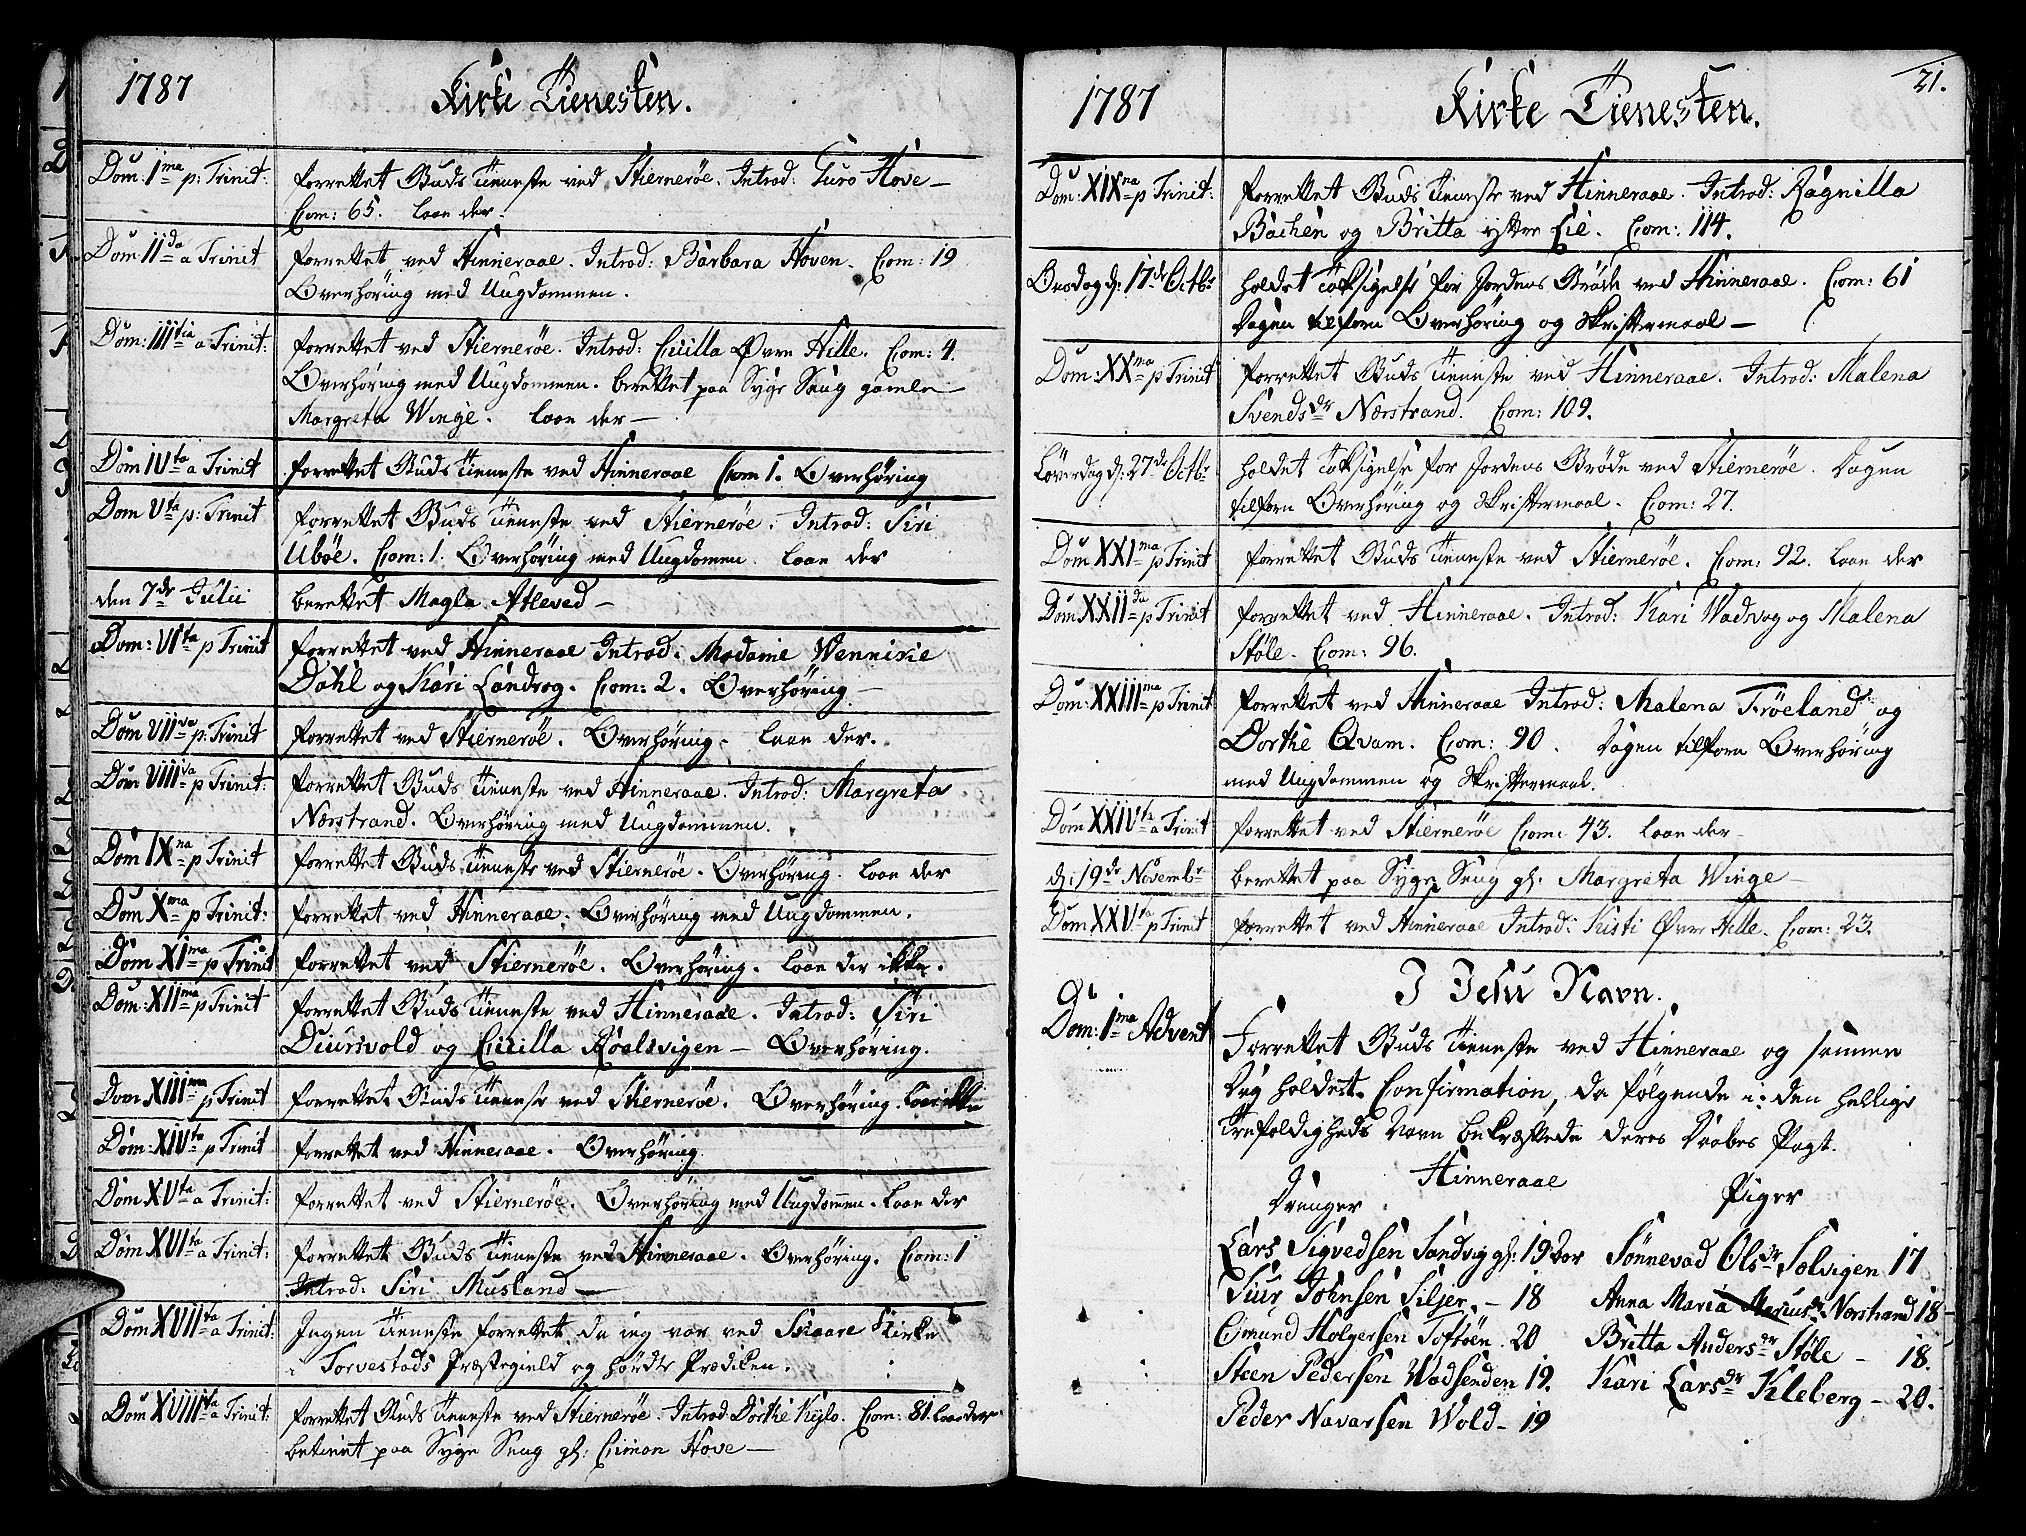 1787 Kirke Tienesten.
Dom: 1ma p: Trinit: forrettet Guds Tieneste ved Stiernerøe. Introd: Guro Hove -
Com: 65. laae der.
Dom: IIda a Trinit forrettet ved Hinneraae. Introd: Barbara Hoven. Com: 19
Overhøring med Ungdommen.
Dom: IIItia a Trinit: forrettet ved Stiernerøe. Introd: Cicilla Øvre Hille. Com: 4.
Overhøring med Ungdommen. berettet paa Syge Seng gamle
Margreta Winge. laae der -
Dom IVta a Trinit forrettet Guds Tieneste ved Hinneraae Com 1. Overhøring
Dom Vta p: Trinit forrettet Guds Tieneste ved Stiernerøe. Introd: Siri
Ubøe. Com: 1. Overhøring med Ungdomen. laae der
den 7de Julii berettet Magla Atleved -
Dom: VIta p Trinit forrettet ved Hinneraae Introd: Madame Wenniche
Dahl og Kari Landrog. Com: 2. Overhøring -
Dom VIIva p: Trinit forrettet ved Stiernerøe. Overhøring. laae der.
Dom VIIIva p Trinit: forrettet Guds Tieneste ved Hinneraae. Introd: Margreta
Nærstrand. Overhøring med Ungdommen.
Dom IXna p Trinit forrettet Guds Tieneste ved Stiernerøe. Overhøring. laae der
Dom Xma p Trinit: forrettet ved Hinneraae. Overhøring med Ungdommen.
Dom XIma p Trinit forrettet ved Stiernerøe. Overhøring. laae der ikke.
Dom: XIIma p Trinit forrettet Guds Tieneste ved Hinneraae. Introd: Siri
Diursvold og Cicilla Roalsvigen - Overhøring.
Dom XIIIma p Trinit forrettet Guds Tieneste ved Stiernerøe. Overhøring. laae ikke
Dom: XIVta p Trinit forrettet ved Hinneraae. Overhøring
Dom XVta a Trinit: forrettet ved Stiernerøe. Overhøring med Ungdommen. laae der
Dom XVIta a Trinit: forrettet Guds Tieneste ved Hinneraae. Overhøring. Com: 1
Introd: Siri Musland -
Dom XVIIta a Trinit: Ingen Tieneste forrettet da ieg var ved Skaare Kirke
i Torvestads Præstegield og hørdte Prædiken.
Dom XVIIIta a Trinit: forrettet Guds Tieneste ved Stiernerøe. Introd: Dorthe Kyslo. Com: 81. laae der
betient paa Syge Seng gl: Cimon Hove -
1787 Kirke Tienesten. 21.
Dom: XIXna p Trinit: forrettet Guds Tieneste ved Hinneraae. Introd: Ragnilla
Bachen og Britta ytter Eie. Com: 114.
Onsdag d: 17de Octbr holdet Taksigelse for Jordens Grøde ved Hinneraae. Com: 61
Dagen tilforn Overhøring og Skriftermaal -
Dom: XXma p Trinit forrettet Guds Tieneste ved Hinneraae. Introd: Malena
Svendsdr Nærstrand. Com: 109.
Løverdag d: 27de Octbr holdet Taksigelse for Jordens Grøde ved Stiernerøe. Dagen
tilforn Overhøring og Skriftermaal. Com: 27.
Dom XXIma p Trinit forrettet Guds Tieneste ved Stiernerøe. Com: 92. laae der
Dom XXIIda p Trinit forrettet ved Hinneraae. Introd: Kari Wadvog og Malena
Støle. Com: 96.
Dom: XXIIIma p Trinit forrettet ved Hinneraae Introd: Malena Frøeland og
Dorthe Qvam. Com: 90. Dagen tilforn Overhøring
med Ungdommen og Skriftermaal.
Dom XXIVta a Trinit forrettet ved Stiernerøe Com: 43. laae der -
d: 19de Novembr berettet paa Syge Seng gl: Margreta Winge -
Dom XXVta p Trinit forrettet ved Hinneraae Introd: Kisti Øvre Hille. Com: 23.
I Jesu Navn.
Dom: 1ma Advent Forrettet Guds Tieneste ved Hinneraae og samme
Dag holdest Confirmation, da følgende i den hellige
Trefoldigheds Navn bekræftede deres Daabes Pagt.
Hinneraae
Drenger Piger
Lars Sigvedsen Sandvig gl: 19 Aar Sønnevad Olsdr Solvigen 17
Siur Johnsen Siljer. - 18 Anna Maria Mariusdr Nærstrand 18
Omund Holgersen Toftøen 20 Britta Andersdr Støle - 18.
Steen Pedersen Wadsenden 19. Kari Larsdr Kleberg - 20.
Peder Navarsen Wold - 19